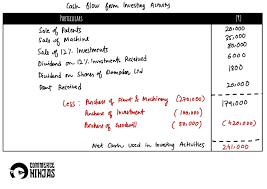 Cash Flow from Investing Activity
Particulars (₹)
Sale of Patents 20,000
Sale of Machine 35,000
Sale of 12% Investments 80,000
Dividend on 12% Investments Received 6000
Dividend on Shares of 1800
Rent Received 20,000
Less: Purchase of Plant & Machinery
Purchase of Investment
Purchase of Goodwill (420,000)
Net Cash used in Investing Activities
COMMERCE
NINJAS